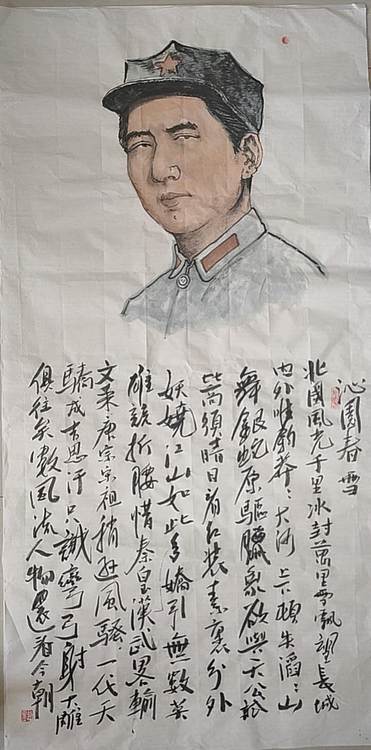 沁園春雪
北國風光千里冰封萬里雪飄望長城
内外惟餘莽〻大河上下頓失滔〻山
舞銀蛇原驅臘象欲與天公
比高須晴日看紅裝素裹分外
妖嬈江山如此多嬌引無數英
雄競折腰惜秦皇漢武畧輸
文采唐宗宋祖稍遜風騷一代天
驕成吉思汗只識彎弓射大雕
俱往矣數風流人物還看今朝